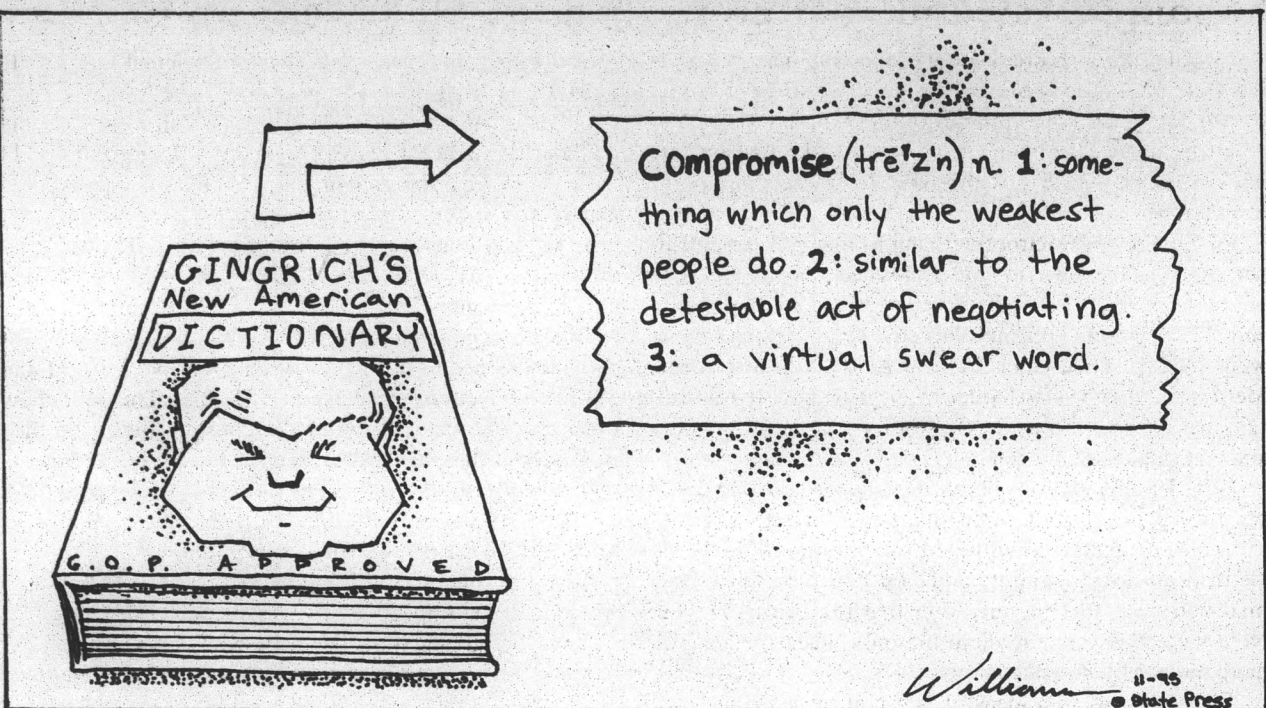 GINGRICH'S
New American
DICTIONARY
G.O.P. APPROVED
Compromise (trē'z'n) n. 1: some-
thing which only the weakest
people do. 2: similar to the
detestable act of negotiating.
3: a virtual swear word.
Williams
11-95
© State Press